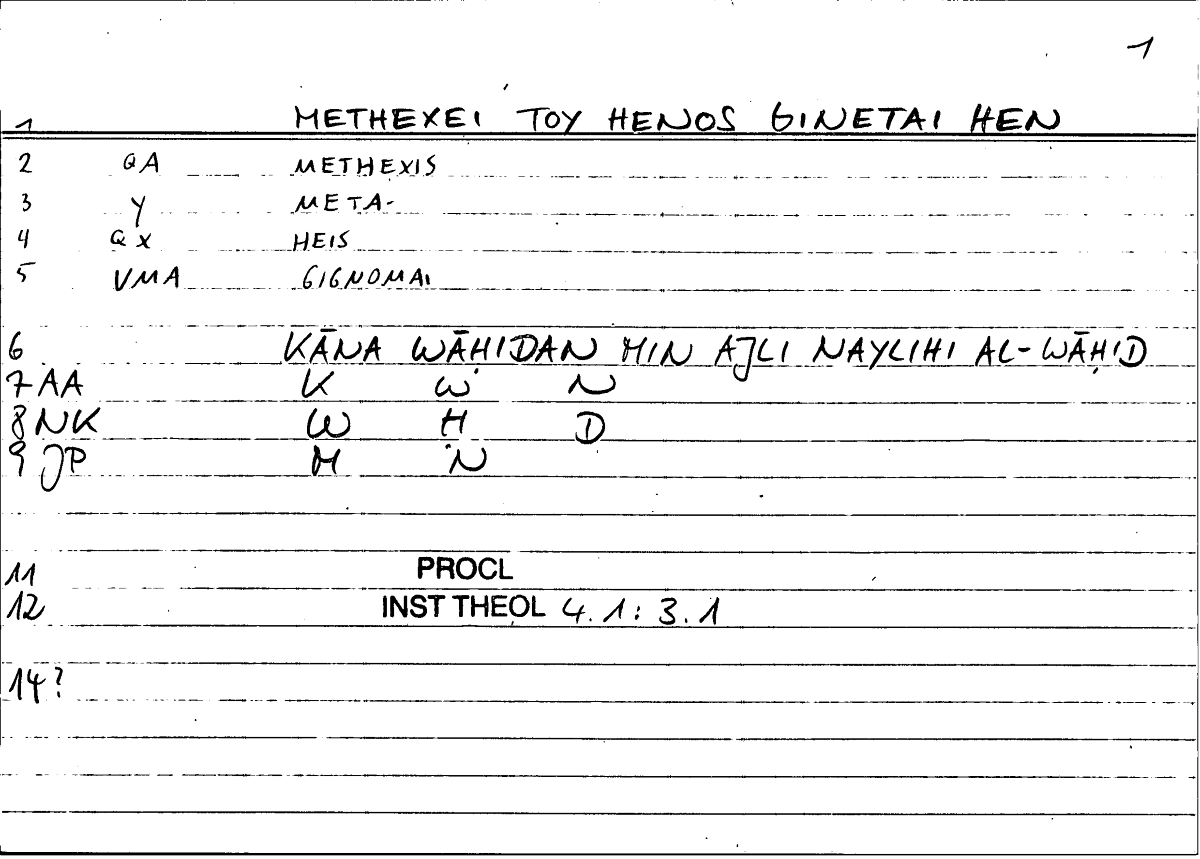 1
1 METHEXEI TOY HENOS GINETAI HEN
2 QA METHEXIS
3 Y META-
4 QX HEIS
5 VMA GIGNOMAI
6 KĀNA WĀḤIDAN MIN AJLI NAYLIHI AL-WĀḤID
7 AA K W N
8 NK W Ḥ D
9 JP M N
11 PROCL
12 INST THEOL 4.1: 3.1
14?